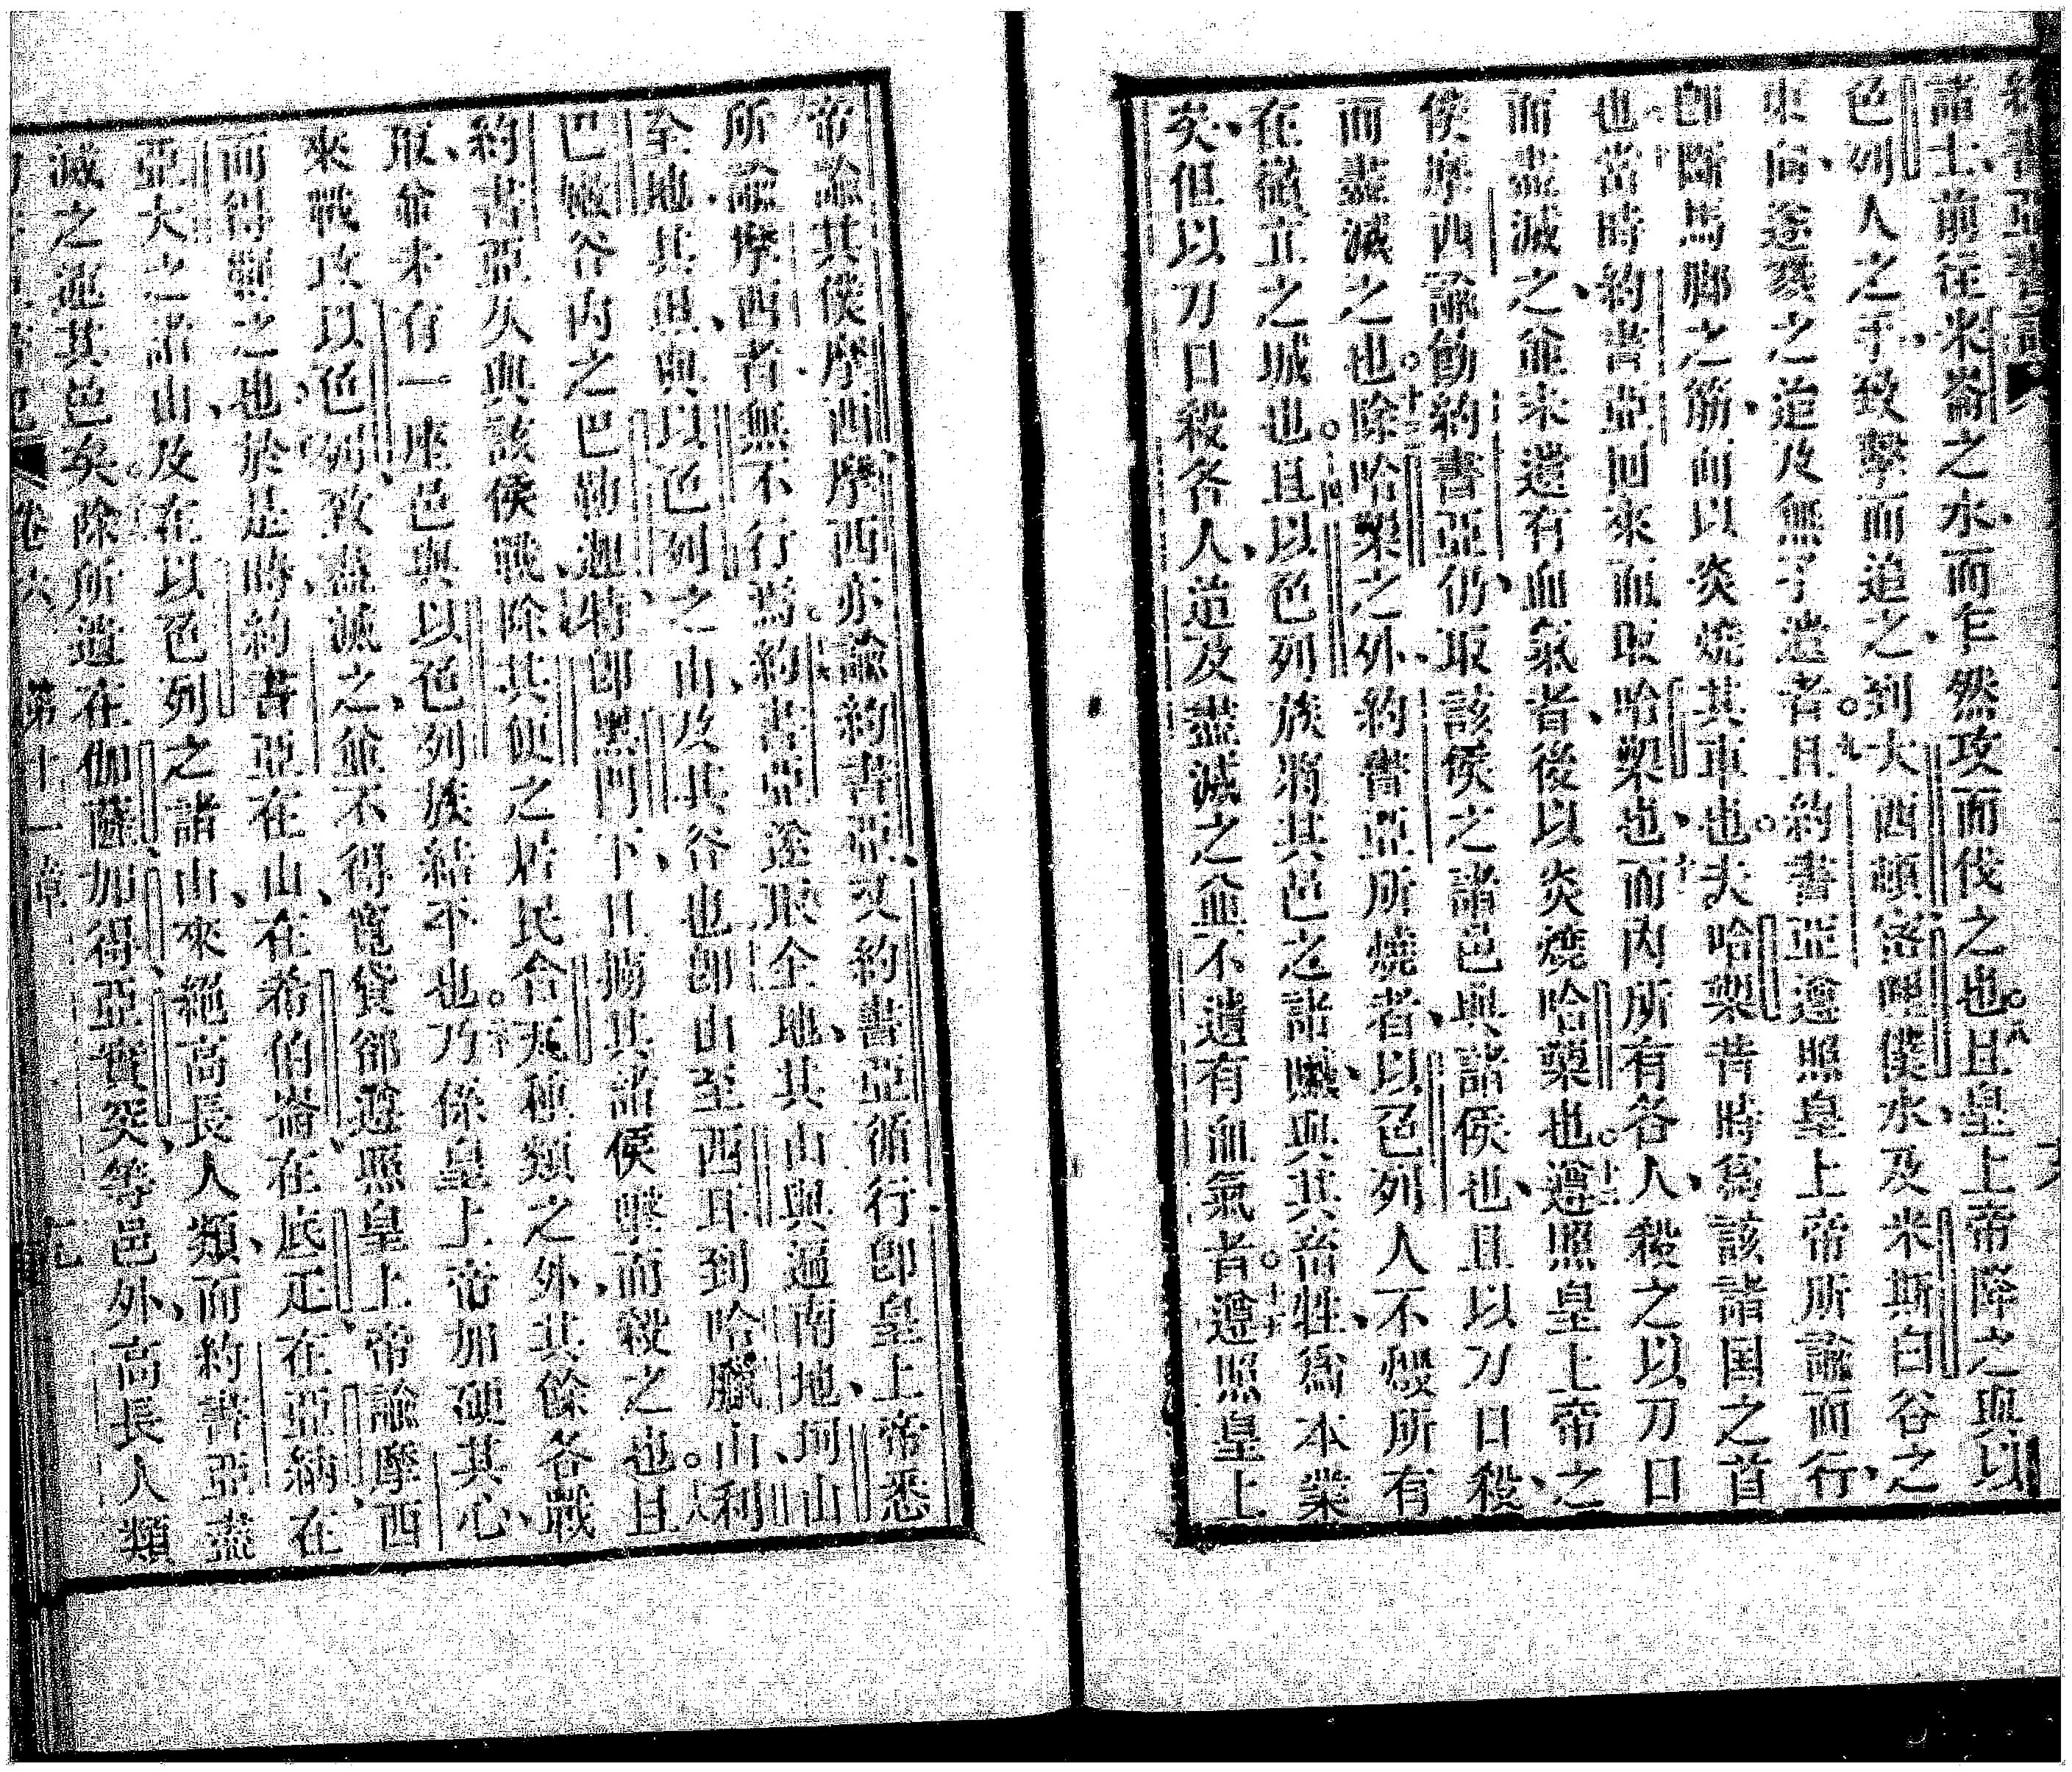 約書亞書記
諸士前往米崙之水而乍然攻而伐之也○八且皇上帝降之與以
色列人之手致擊而追之到大西頓密哩僕水及米斯白谷之
東向遂戮之追及無孑遺者○九且約書亞遵照皇上帝所諭而行
卽斷馬腳之筋而以炎燒其車也○夫哈槊昔時爲該諸国之首
也○十當時約書亞回來而取哈槊也而內所有各人殺之以刀口
而盡滅之並未遺有血氣者後以炎燒哈槊也○十二遵照皇上帝之
僕摩西諭飭約書亞仍取該侯之諸邑與諸侯也且以刀口殺
而盡滅之也○十三除哈槊之外約書亞所燒者以色列人不燬所有
在嶺立之城也○十四且以色列族將其邑之諸贓與其畜牲爲本業
矣但以刀口殺各人追及盡滅之並不遺有血氣者○十五遵照皇上
帝諭其僕摩西摩西亦諭約書亞又約書亞循行卽皇上帝悉
所諭摩西者無不行焉○約書亞遂取全地其山與遍南地坷山
全地其坦與以色列之山及其谷也卽山至西耳到哈臘山利
巴嫩谷內之巴勒迦特卽黑門下且擄其諸侯擊而殺之也○十八且
約書亞久與該侯戰除其便之居民合未種類之外其餘各戰
取並未有一座邑與以色列族結平也○二十乃係皇上帝加硬其心
來戰攻以色列致盡滅之並不得寬貸卻遵照皇上帝諭摩西
而得擊之也於是時約書亞在山在希伯崙在底疋在亞納在
亞大之諸山及在以色列之諸山來絕高長人類而約書亞盡
滅之連其邑矣除所遺在伽薩加得亞實突等邑外高長人類
卷六 第十一章